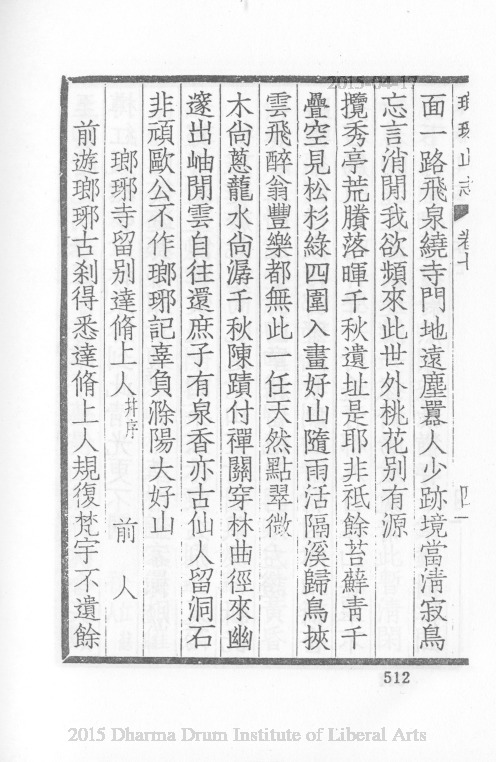 2015-04-17
瑯琊山志　卷七　四一
面一路飛泉繞寺門地遠塵囂人少跡境當清寂鳥
忘言消閒我欲頻來此世外桃花別有源
攬秀亭荒賸落暉千秋遺址是耶非祗餘苔蘚青千
疊空見松杉綠四圍入畫好山隨雨活隔溪歸鳥挾
雲飛醉翁豐樂都無此一任天然點翠微
木尙蔥蘢水尙潺千秋陳蹟付禪關穿林曲徑來幽
邃出岫閒雲自往還庶子有泉香亦古仙人留洞石
非頑歐公不作瑯琊記辜負滁陽大好山
瑯琊寺留別達脩上人幷序　前人
前遊瑯琊古刹得悉達脩上人規復梵宇不遺餘
512
2015 Dharma Drum Institute of Liberal Arts